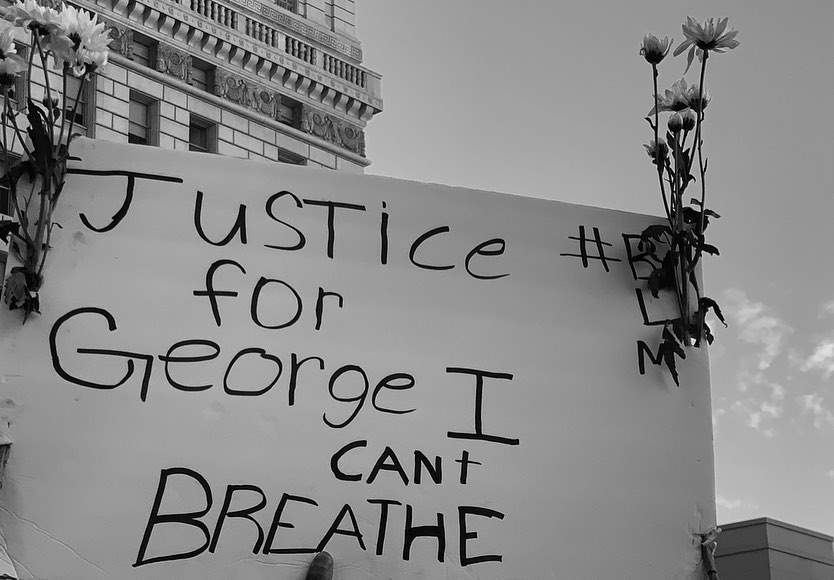 Justice
for
George I
CANt
BREATHE
#B
L
M